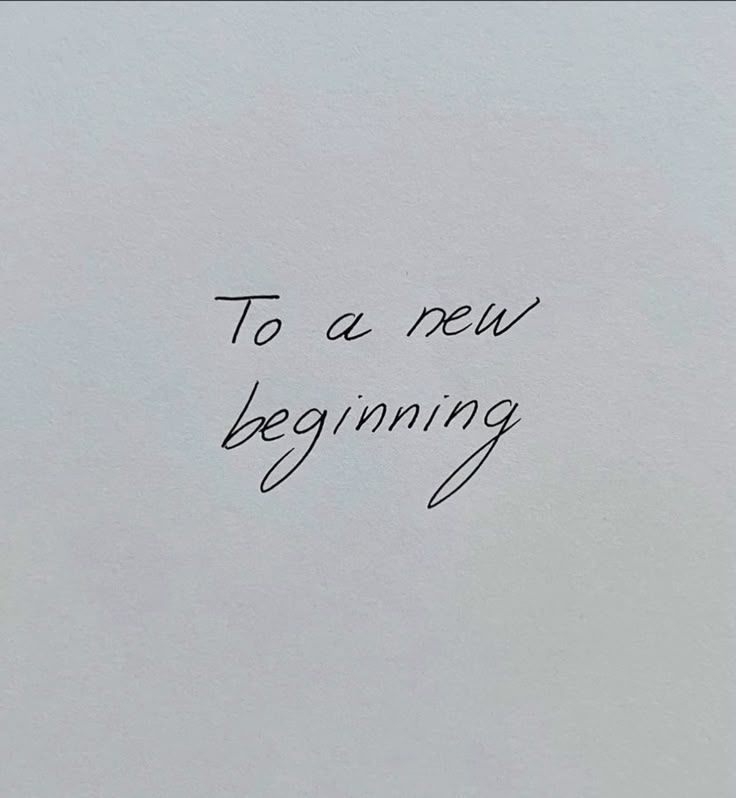 To a new
beginning